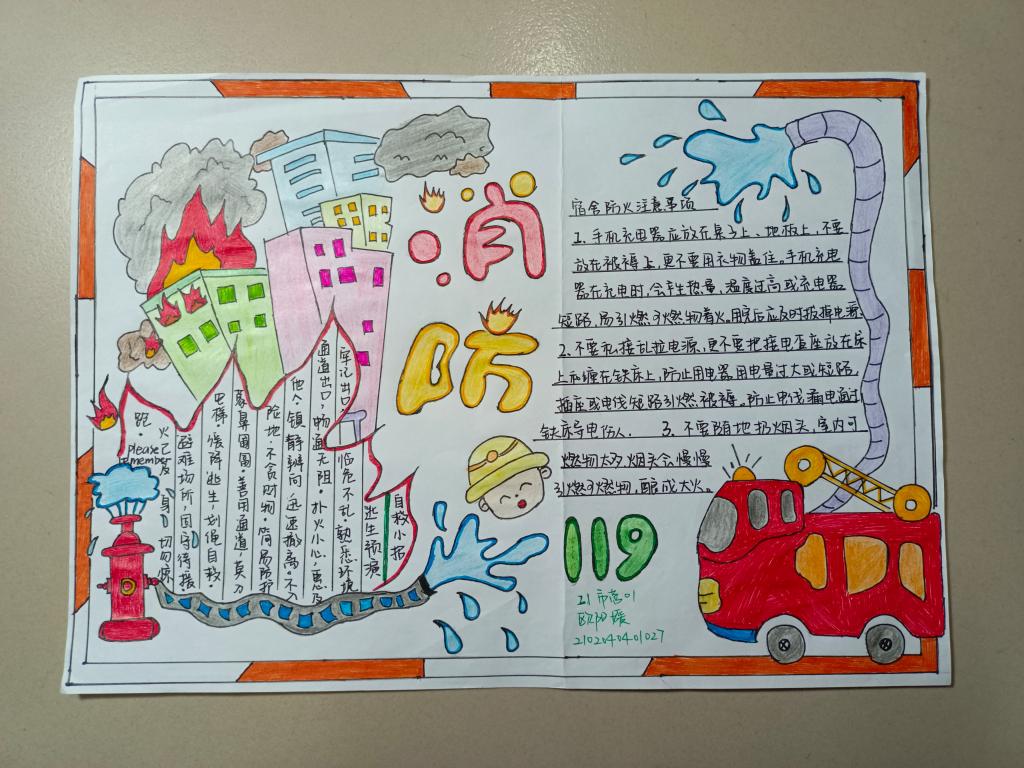 消
防
自救小报
逃生预演
临危不乱·熟悉环境
牢记出口·
通道出口，畅通无阻·扑火小心，惠及
他人·镇静辨向 迅速撤离·不入
险地·不贪财物·简易防护
电梯·缓降逃生，划绳自救·
避难场所，固守待援·
火已及身·切勿惊
跑·
please
remember
宿舍防火注意事项
1. 手机充电器应放在桌子上、地板上，不要
放在被褥上，更不要用衣物盖住。手机充电
器在充电时，会产生热量，温度过高或充电器
短路，易引燃可燃物着火。用完后应及时拔掉电源
2. 不要私接乱拉电源，更不要把接电插座放在床
上和缠在铁床上，防止用电器用电量过大或短路，
插座或电线短路引燃被褥。防止电线漏电通过
铁床导电伤人。 3. 不要随地扔烟头，室内可
燃物太多，烟头会慢慢
引燃可燃物，酿成大火。
119
21市营01
欧阳
2102040401027